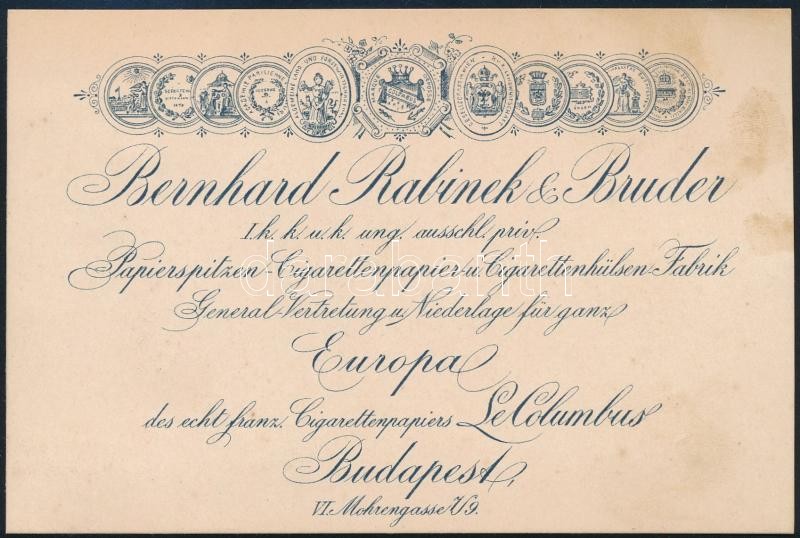 Bernhard Rabinek & Bruder
I. k. k. u. k. ung. ausschl. priv.
Papierspitzen-Cigarettenpapier-u. Cigarettenhülsen-Fabrik
General-Vertretung u. Niederlage für ganz
Europa
des echt franz. Cigarettenpapiers Le Columbus
Budapest,
VI. Mohrengasse 7/9.
darabanth